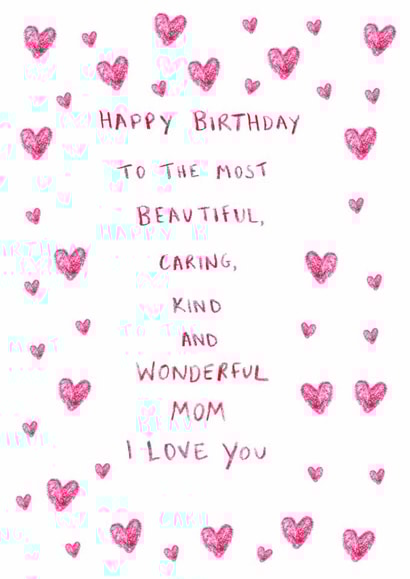 HAPPY BIRTHDAY
TO THE MOST
BEAUTIFUL,
CARING,
KIND
AND
WONDERFUL
MOM
I LOVE YOU